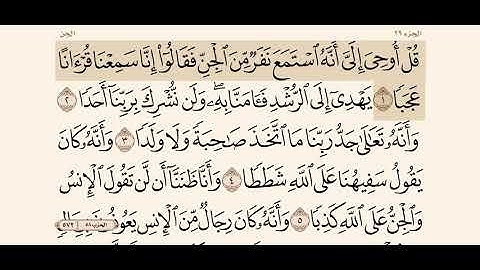 الجزء ٢٩
الجن
قُلْ أُوحِيَ إِلَيَّ أَنَّهُ ٱسْتَمَعَ نَفَرٌ مِّنَ ٱلْجِنِّ فَقَالُوٓا۟ إِنَّا سَمِعْنَا قُرْءَانًا
عَجَبًا ١ يَهْدِىٓ إِلَى ٱلرُّشْدِ فَـَٔامَنَّا بِهِۦ ۖ وَلَن نُّشْرِكَ بِرَبِّنَآ أَحَدًا ٢
وَأَنَّهُۥ تَعَـٰلَىٰ جَدُّ رَبِّنَا مَا ٱتَّخَذَ صَـٰحِبَةً وَلَا وَلَدًا ٣ وَأَنَّهُۥ كَانَ
يَقُولُ سَفِيهُنَا عَلَى ٱللَّهِ شَطَطًا ٤ وَأَنَّا ظَنَنَّآ أَن لَّن تَقُولَ ٱلْإِنسُ
وَٱلْجِنُّ عَلَى ٱللَّهِ كَذِبًا ٥ وَأَنَّهُۥ كَانَ رِجَالٌ مِّنَ ٱلْإِنسِ يَعُوذُونَ بِرِجَالٍ
الحزب ٥٨
٥٧٢